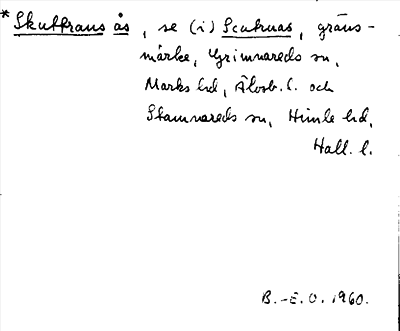 * Skuttrans ås, se (i) Scutruas, gräns-
märke, Grimnareds sn,
Marks hd, Älvsb. l. och
Stamnareds sn, Himle hd,
Hall. l.
B.-E. O. 1960.